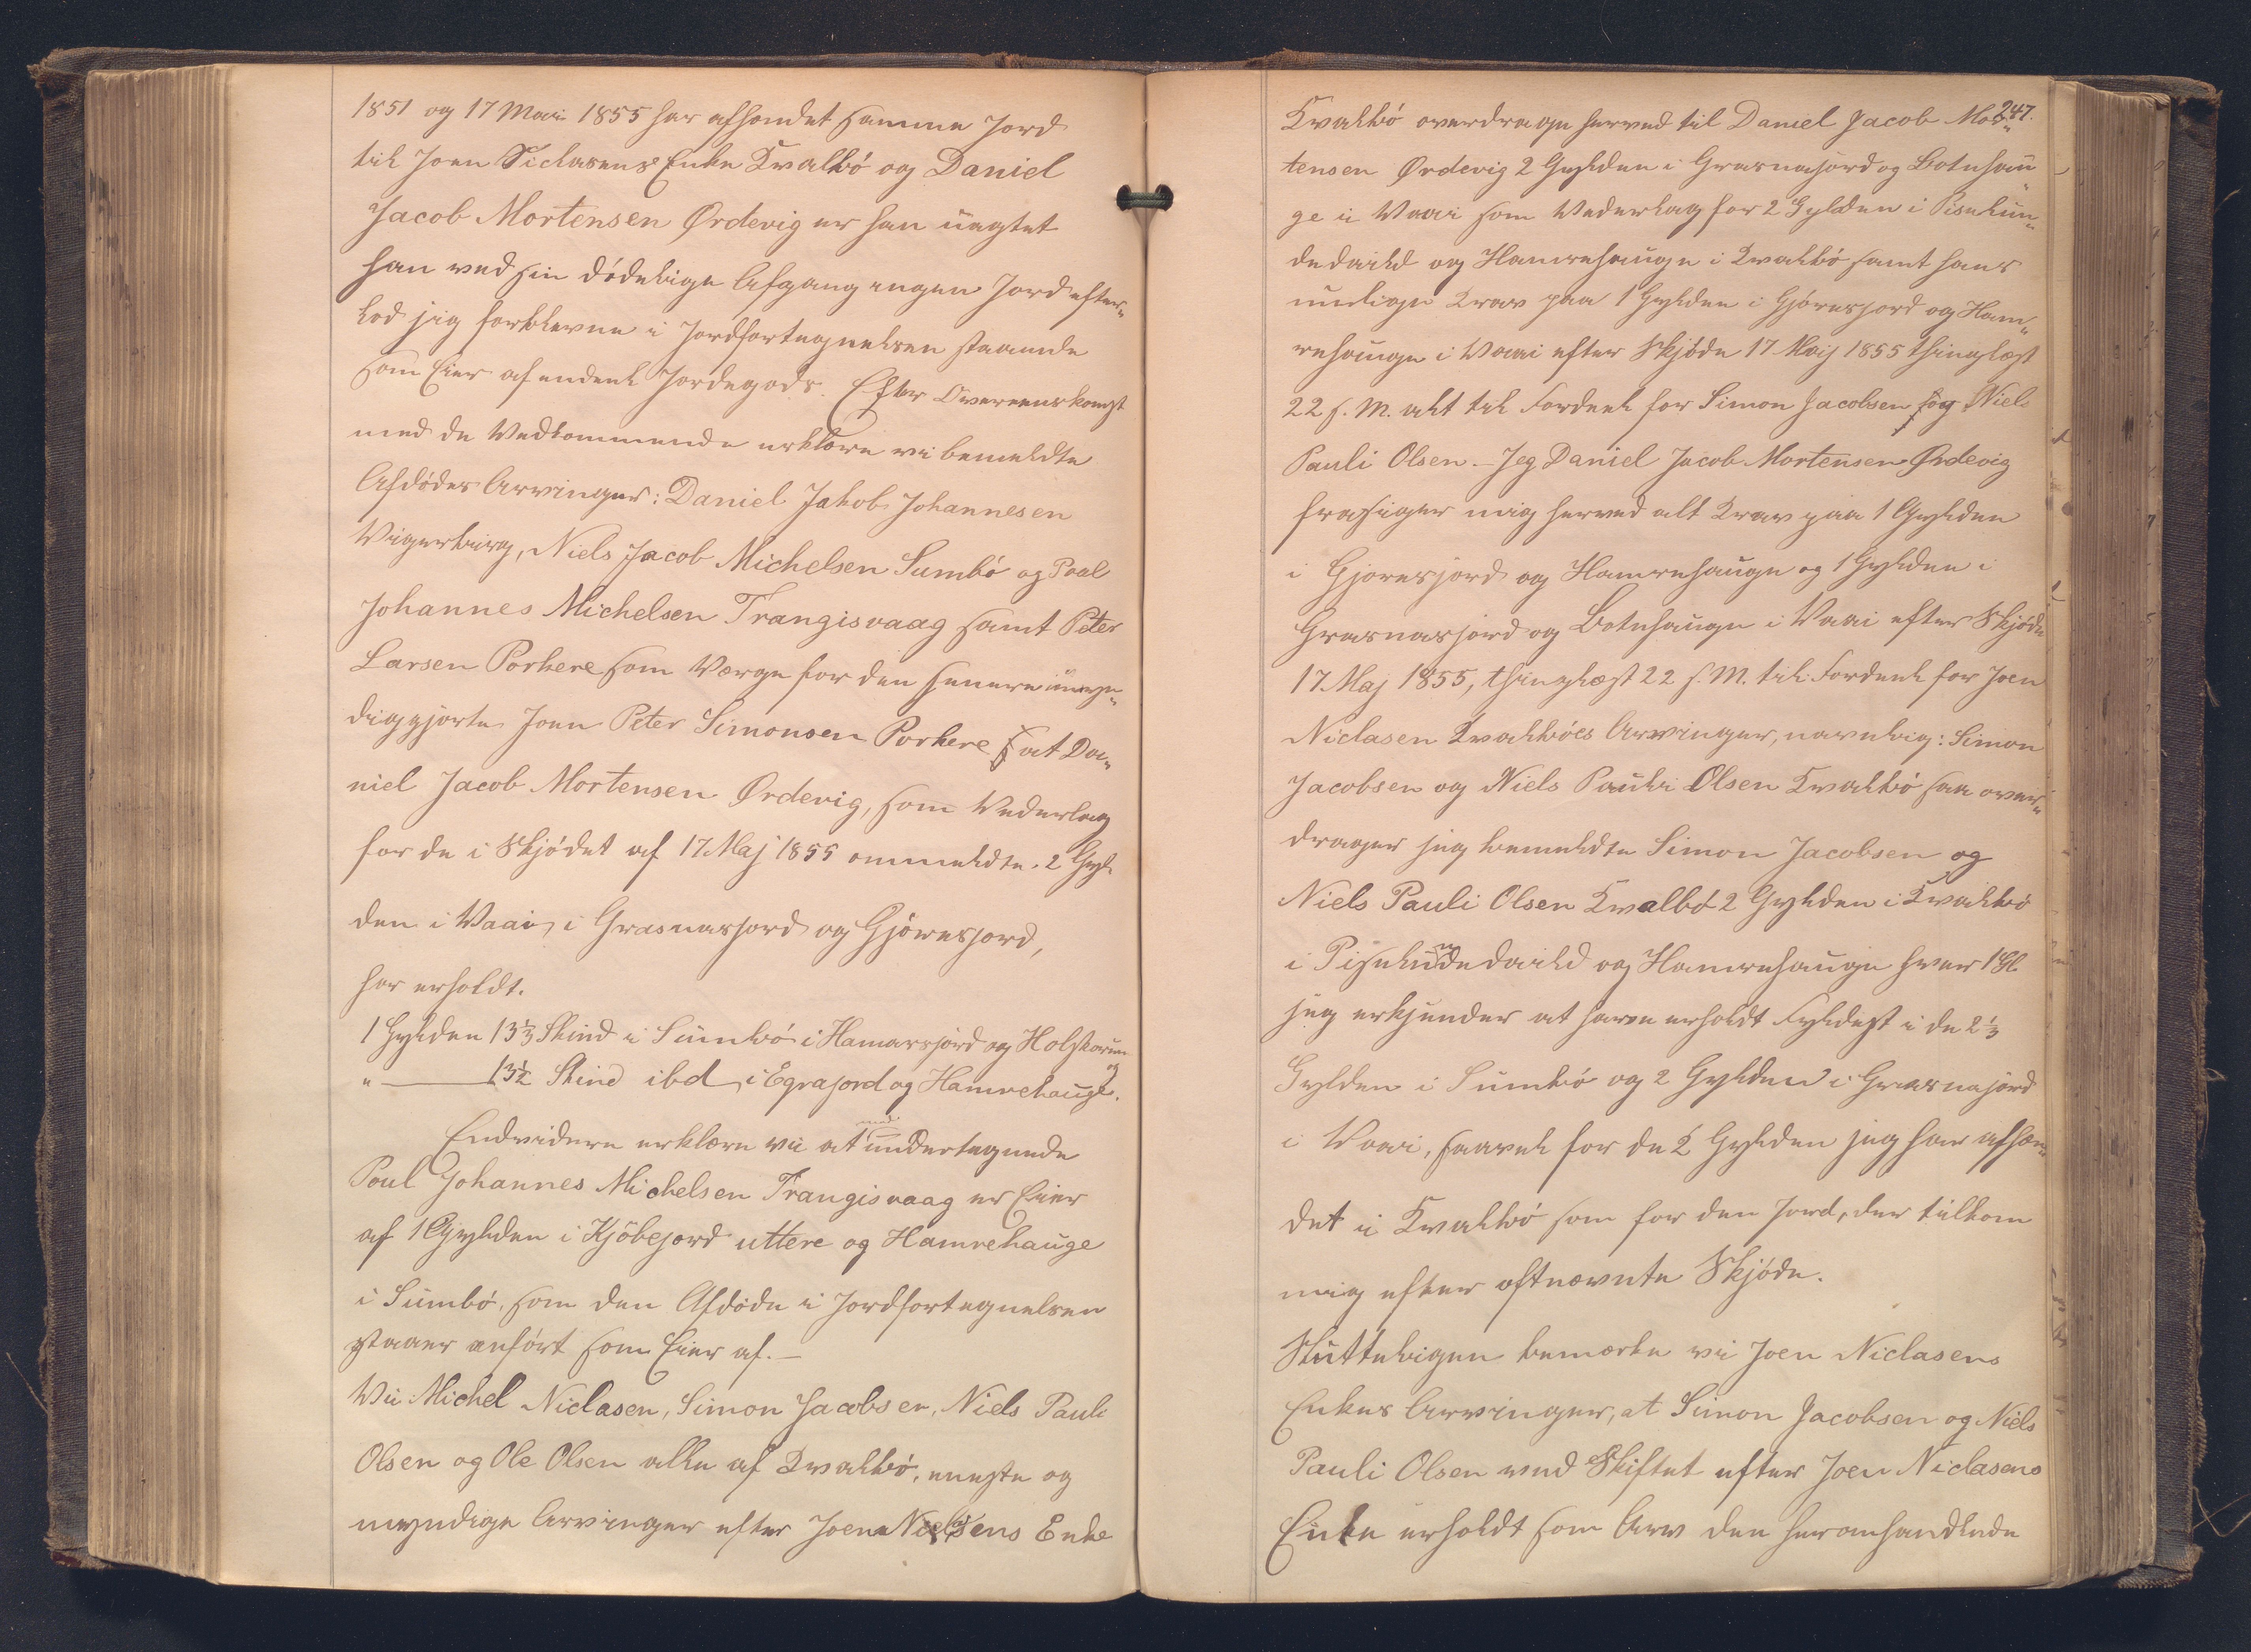 1851 og 17 Mai 1855 har afhændet samme Jord
til Joen Niclasens Enke Kvalbø og Daniel
Jacob Mortensen Ørdevig er han uagtet
han ved sin dødelige Afgang ingen Jord efter„
lod sig forbleven i Jordfortegnelsen staaende
som Eier af endeel Jordegods. Efter Overeenskomst
med de Vedkommende erklære vi bemeldte
Afdødes Arvinger: Daniel Jakob Johannesen
Vigerbirg, Niels Jacob Michelsen Sumbø og Poul
Johannes Michelsen Trangisvaag samt Peter
Larsen Porkere som Værge for den senere umyn„
diggjorte Joen Peter Simonsen Porkere at Da„
niel Jacob Mortensen Ørdevig, som Vederlag
for de i Skjødet af 17 Maj 1855 ommeldte 2 Gyl
den i Vaai, i Grasnasjord og Gjøresjord,
har erholdt.
1 Gylden 13⅓ Skind i Sumbø i Hamarsjord og Holskorum
„ — 13½ Skind ibd i Egrajord og Hamrehauge.
Endvidere erklære vi at med undertegnede
Poul Johannes Michelsen Trangisvaag er Eier
af 1 Gylden i Kjøbejord uttere og Hamrehauge
i Sumbø, som den Afdøde i Jordfortegnelsen
staaer anført som Eier af. —
Vi Michel Niclasen, Simon Jacobsen, Niels Pauli
Olsen og Ole Olsen alle af Kvalbø, eneste og
myndige Arvinger efter Joen Niclasens Enke
247.
Kvalbø overdrage herved til Daniel Jacob Mor„
tensen Ørdevig 2 Gylden i Grasnasjord og Botnhau„
ge i Vaai som Vederlag for 2 Gylden i Pisulun„
dedaild og Hamrehauge i Kvalbø samt hans
muelige Krav paa 1 Gylden i Gjøresjord og Ham„
rehauge i Vaai efter Skjøde 17 Maij 1855 thinglæst
22 s. M. alt til Fordeel for Simon Jacobsen og Niels
Pauli Olsen. — Jeg Daniel Jacob Mortensen Ørdevig
frasiger mig herved alt Krav paa 1 Gylden
i Gjøresjord og Hamrehauge og 1 Gylden i
Grasnasjord og Botnhauge i Vaai efter Skjøde
17 Maj 1855, thinglæst 22 s. M. til Fordeel for Joen
Niclasen Kvalbøes Arvinger, navnlig: Simon
Jacobsen og Niels Pauli Olsen Kvalbø saa over„
drager jeg bemeldte Simon Jacobsen og
Niels Pauli Olsen Kvalbø 2 Gylden i Kvalbø
i Pisulundedaild og Hamrehauge hver 1 Gl.
jeg erkjender at have erholdt Fyldest i de 2⅓
Gylden i Sumbø og 2 Gylden i Grasnajord
i Vaai, saavel for de 2 Gylden jeg har afhæn„
det i Kvalbø som for den Jord, der tilkom
mig efter oftnævnte Skjøde.
Slutteligen bemærke vi Joen Niclasens
Enkes Arvinger, at Simon Jacobsen og Niels
Pauli Olsen ved Skiftet efter Joen Niclasens
Enke erholdt som Arv den heromhandlede